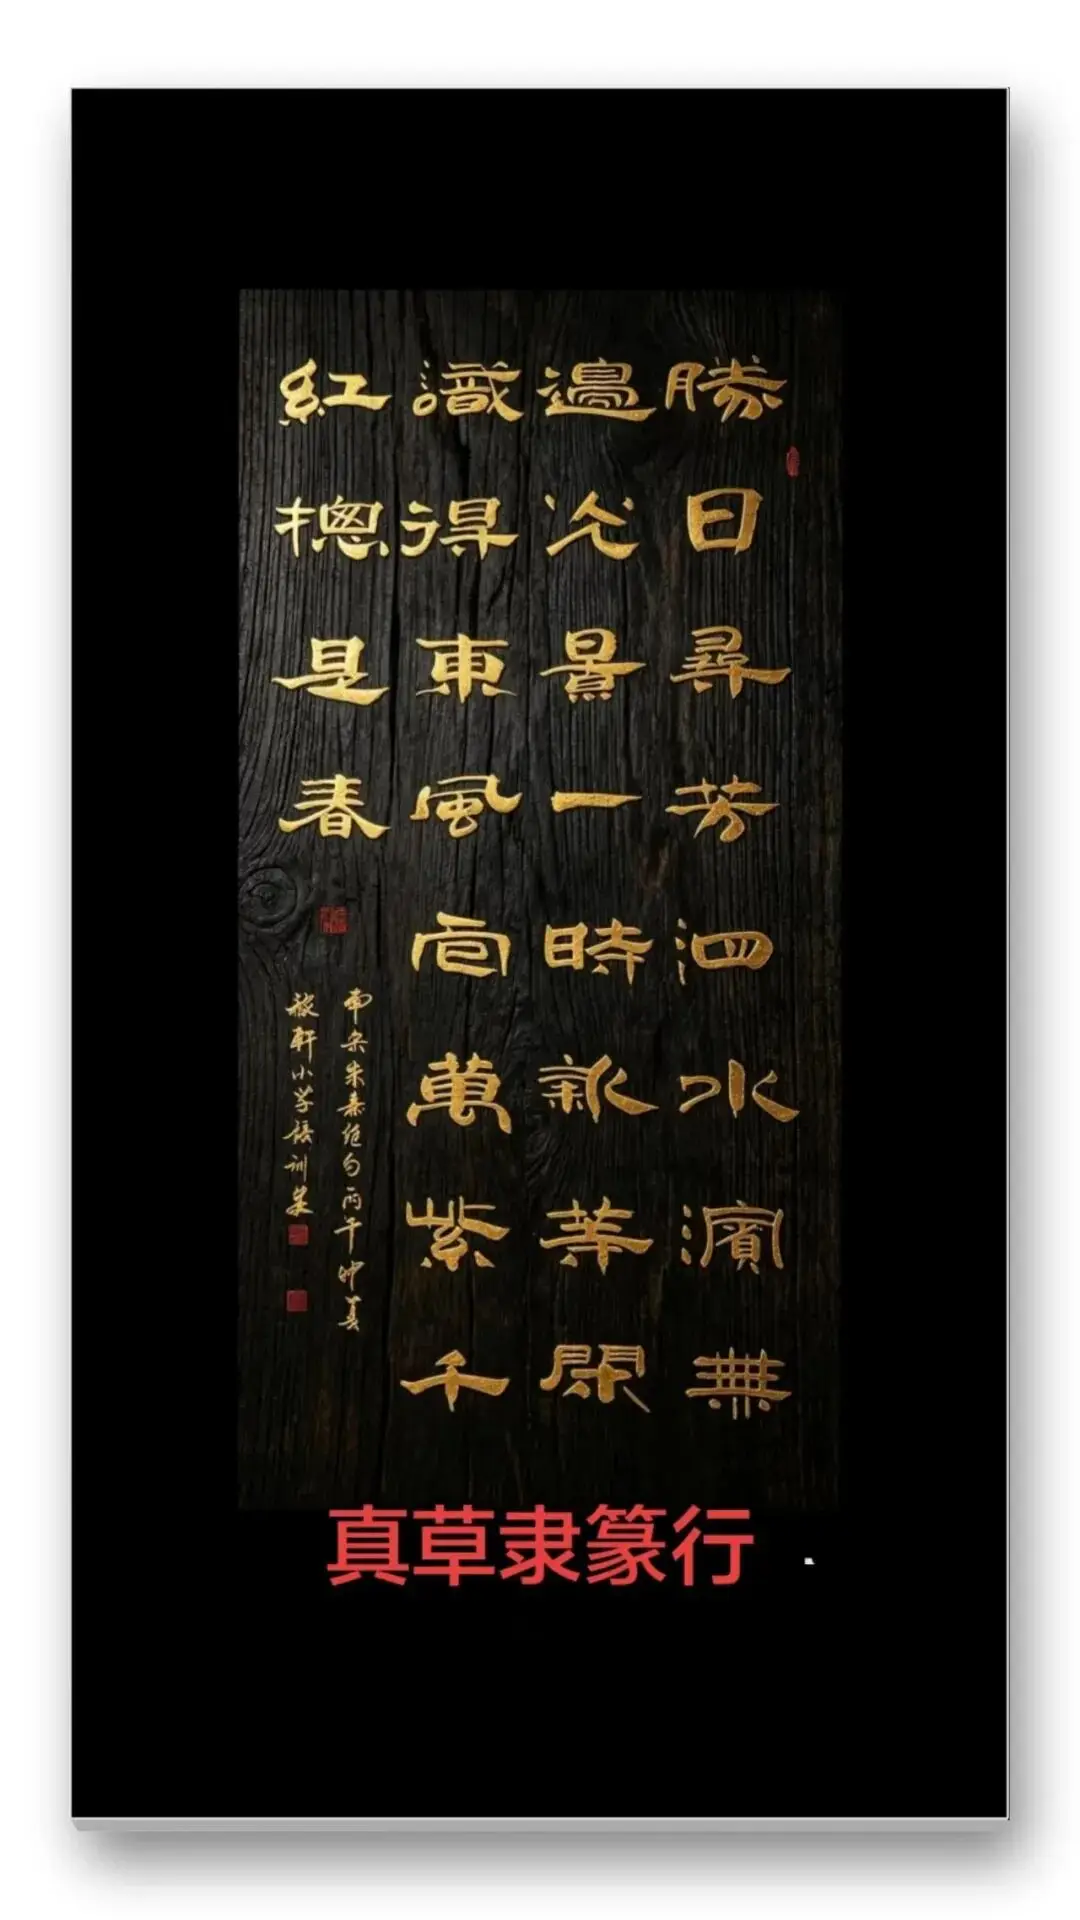 勝日尋芳泗水濱無
邊光景一時新等閑
識得東風面萬紫千
紅摠是春
南宋朱熹绝句丙午仲夏
稼軒小学
真草隶篆行